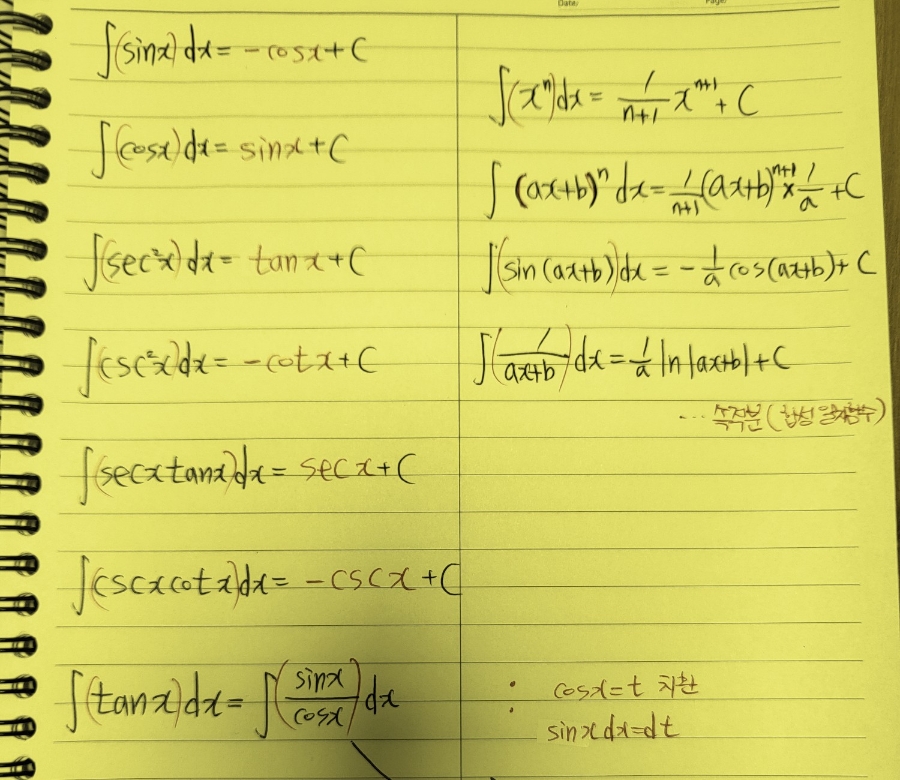 Date/
Page/
∫(sinx)dx = -cosx+C
∫(cosx)dx = sinx+C
∫(sec²x)dx = tanx+C
∫(csc²x)dx = -cotx+C
∫(secxtanx)dx = secx+C
∫(cscxcotx)dx = -cscx+C
∫(tanx)dx = ∫(sinx/cosx)dx
∫(xⁿ)dx = 1/(n+1) xⁿ⁺¹ + C
∫(ax+b)ⁿdx = 1/(n+1) (ax+b)ⁿ⁺¹ × 1/a + C
∫(sin(ax+b))dx = -1/a cos(ax+b)+C
∫(1/(ax+b))dx = 1/a ln|ax+b|+C
... 속적분(합성일차함수)
: cosx=t 치환
sinxdx=dt